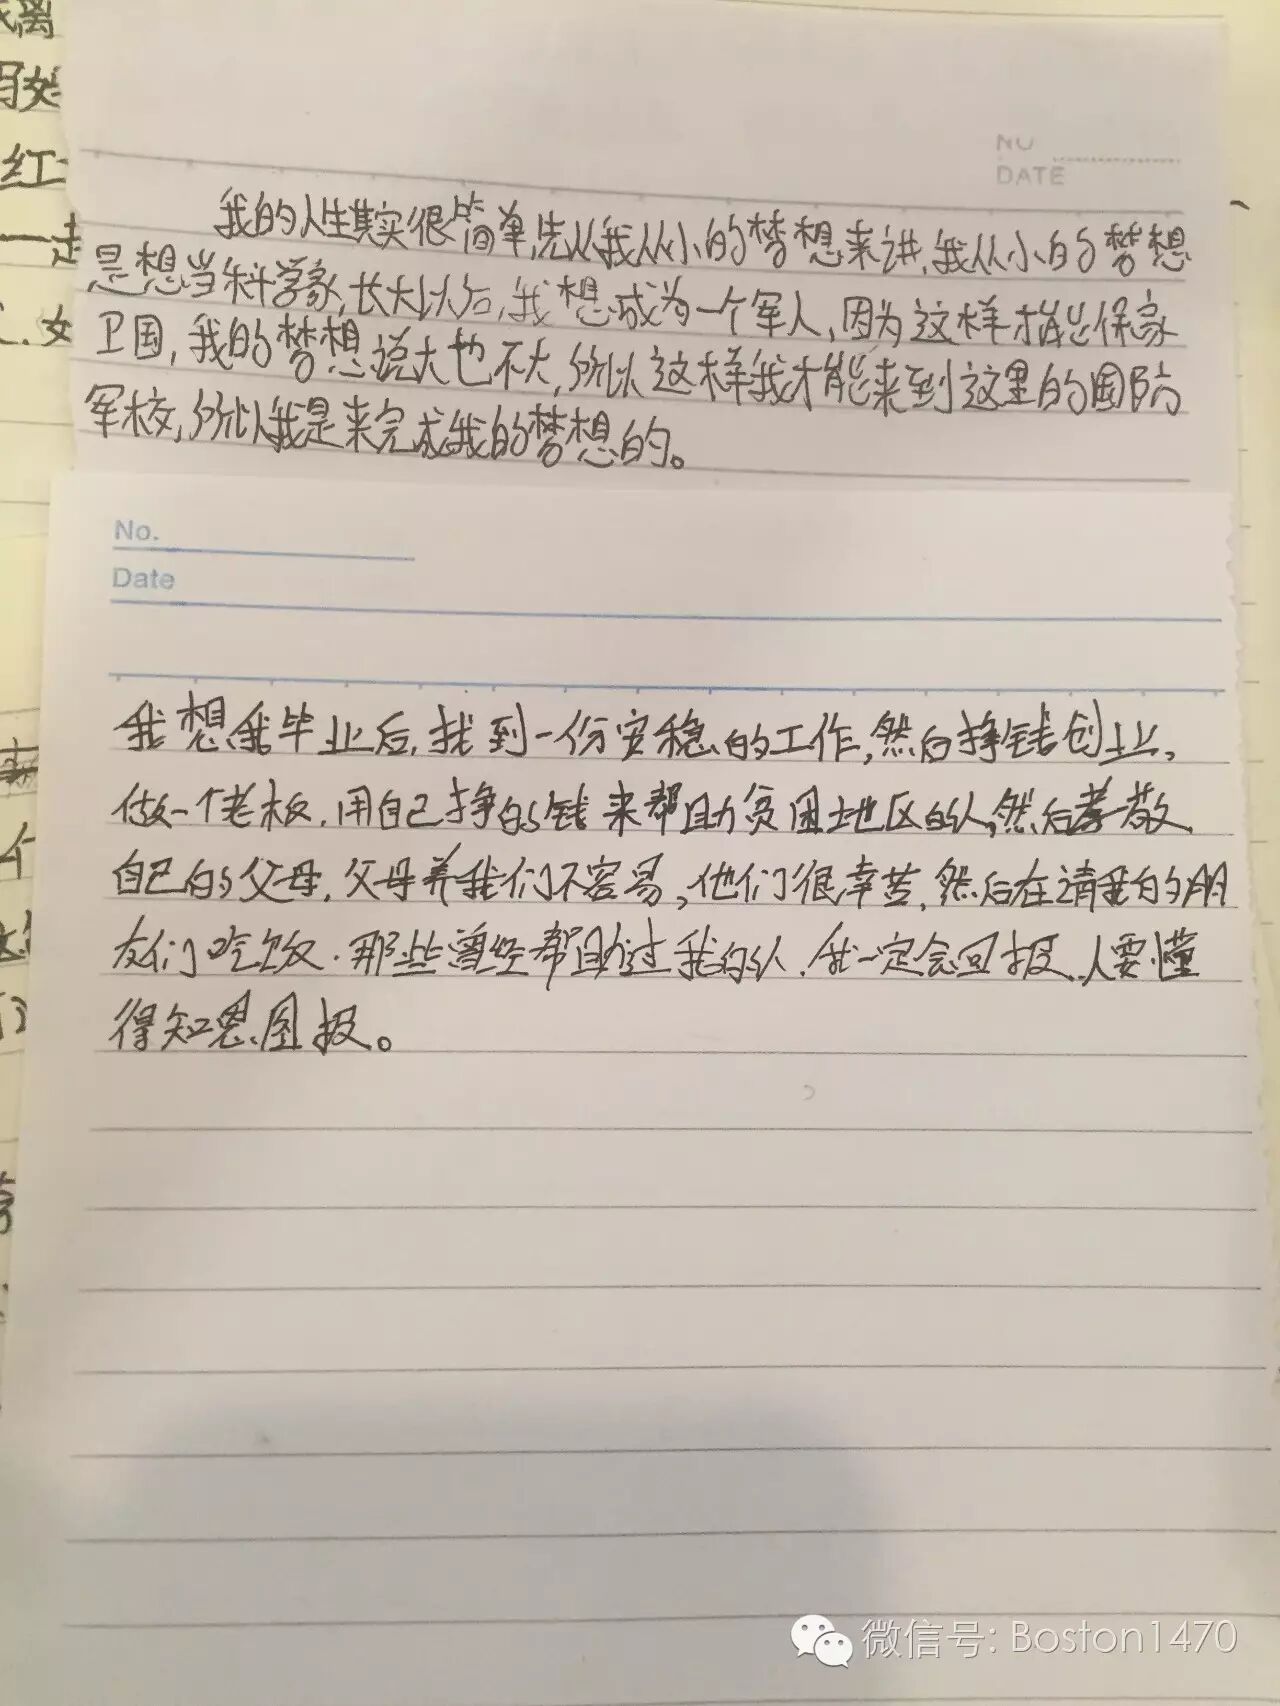 离
红
一走
女
NO
DATE
我的人生其实很简单,先从我从小的梦想来讲,我从小的梦想
是想当科学家,长大以后,我想成为一个军人,因为这样才能保家
卫国,我的梦想说大也不大,所以这样我才能来到这里的国防
军校,所以我是来完成我的梦想的。
No.
Date
我想我毕业后,找到一份安稳的工作,然后挣钱创业,
做一个老板.用自己挣的钱来帮助贫困地区的人,然后孝敬
自己的父母,父母养我们不容易,他们很幸苦,然后在请我的朋
友们吃饭.那些曾经帮助过我的人.我一定会回报.人要懂
得知恩图报。
微信号: Boston1470